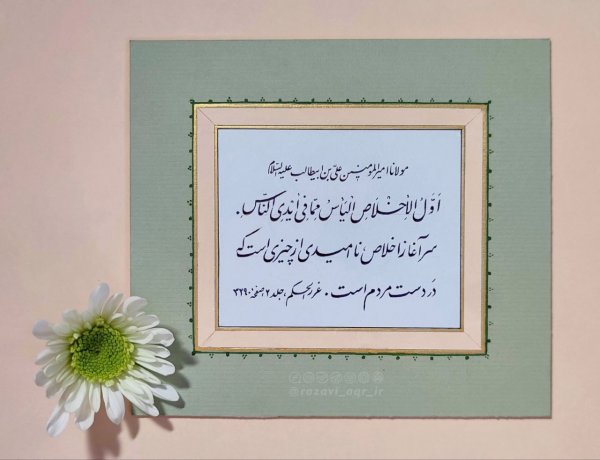 مولانا امیرالمؤمنین علی بن ابیطالب علیه السلام
اَوَّلُ الْاِخْلاصِ الْیَأْسُ مِمّا فی اَیْدِی النّاسِ.
سرآغاز اخلاص ناامیدی از چیزی است که
در دست مردم است. غررالحکم، جلد ۲ صفحهٔ ۳۲۹۰
@razavi_aqr_ir